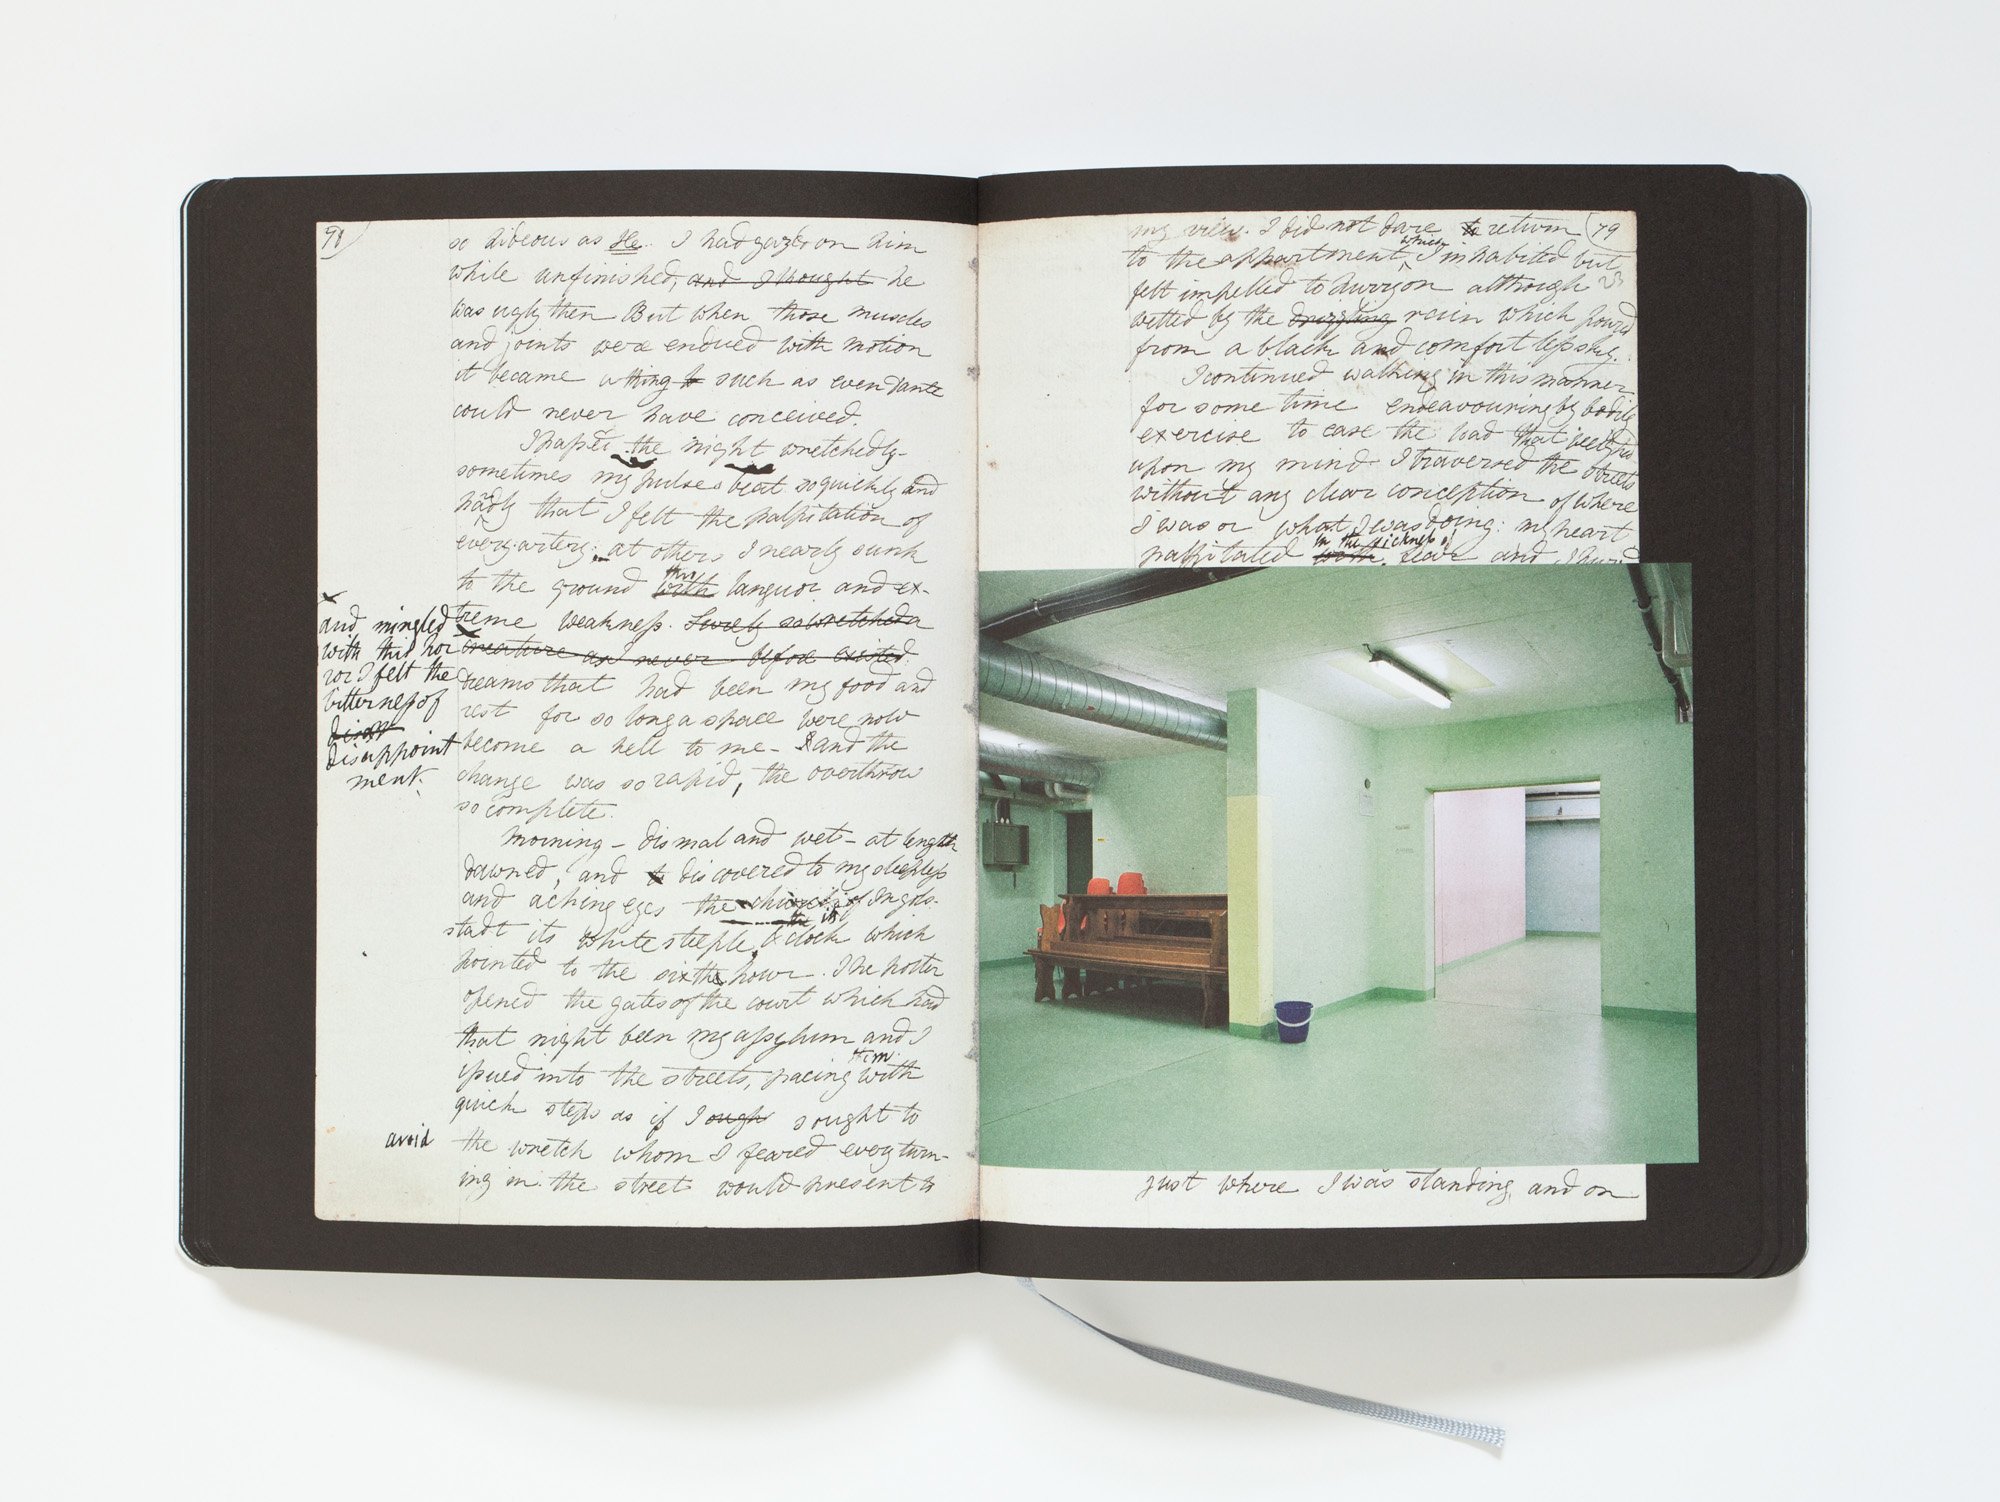 78
so hideous as He. I had gazed on him
while unfinished, and I thought he
was ugly then But when those muscles
and joints were endued with motion
it became a thing such as even Dante
could never have conceived.
I passed the night wretchedly-
sometimes my pulses beat so quickly and
hardly that I felt the palpitation of
every artery; at others I nearly sunk
to the ground with languor and ex-
treme weakness. Surely so wretched a
creature as I never before existed
dreams that had been my food and
rest for so long a space were now
become a hell to me - and the
change was so rapid, the overthrow
so complete.
Morning - dismal and wet - at length
dawned, and discovered to my sleepless
and aching eyes the church of Ingols-
stadt its white steeple & clock which
pointed to the sixth hour. The porter
opened the gates of the court which had
that night been my assylum and I
issued into the streets, pacing with
quick steps as if I sought to
avoid the wretch whom I feared every turn-
ing in the street would present to
x
and mingled
with this hor
ror I felt the
bitterness of
disappoint
ment.
my view. I did not dare to return
79
to the appartment which I inhabited but
felt impelled to hurry on although
wetted by the drizzling rain which poured
from a black and comfortless sky.
I continued walking in this manner
for some time endeavouring by bodily
exercise to ease the load that weighed
upon my mind. I traversed the streets
without any clear conception of where
I was or what I was doing: my heart
palpitated in the sickness of fear and I
just where I was standing, and on